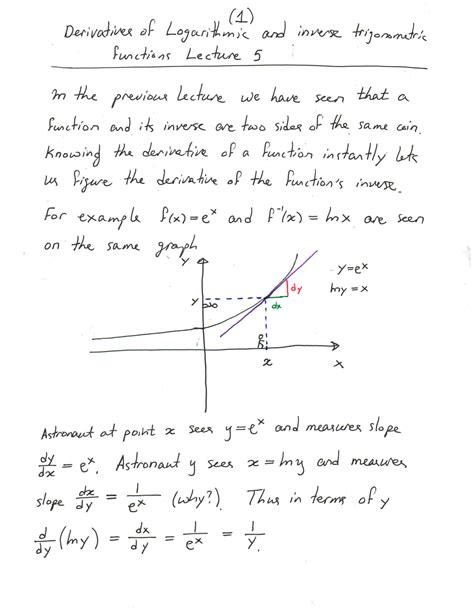 (1)
Derivatives of Logarithmic and inverse trigonometric
functions Lecture 5
In the previous lecture we have seen that a
function and its inverse are two sides of the same coin.
Knowing the derivative of a function instantly lets
us figure the derivative of the function's inverse.
For example f(x)=eˣ and f⁻¹(x) = ln x are seen
on the same graph
y
y=eˣ
ln y = x
dy
y
dx
x
x
Astronaut at point x sees y=eˣ and measures slope
dy/dx = eˣ. Astronaut y sees x = ln y and measures
slope dx/dy = 1/eˣ (why?). Thus in terms of y
d/dy (ln y) = dx/dy = 1/eˣ = 1/y.